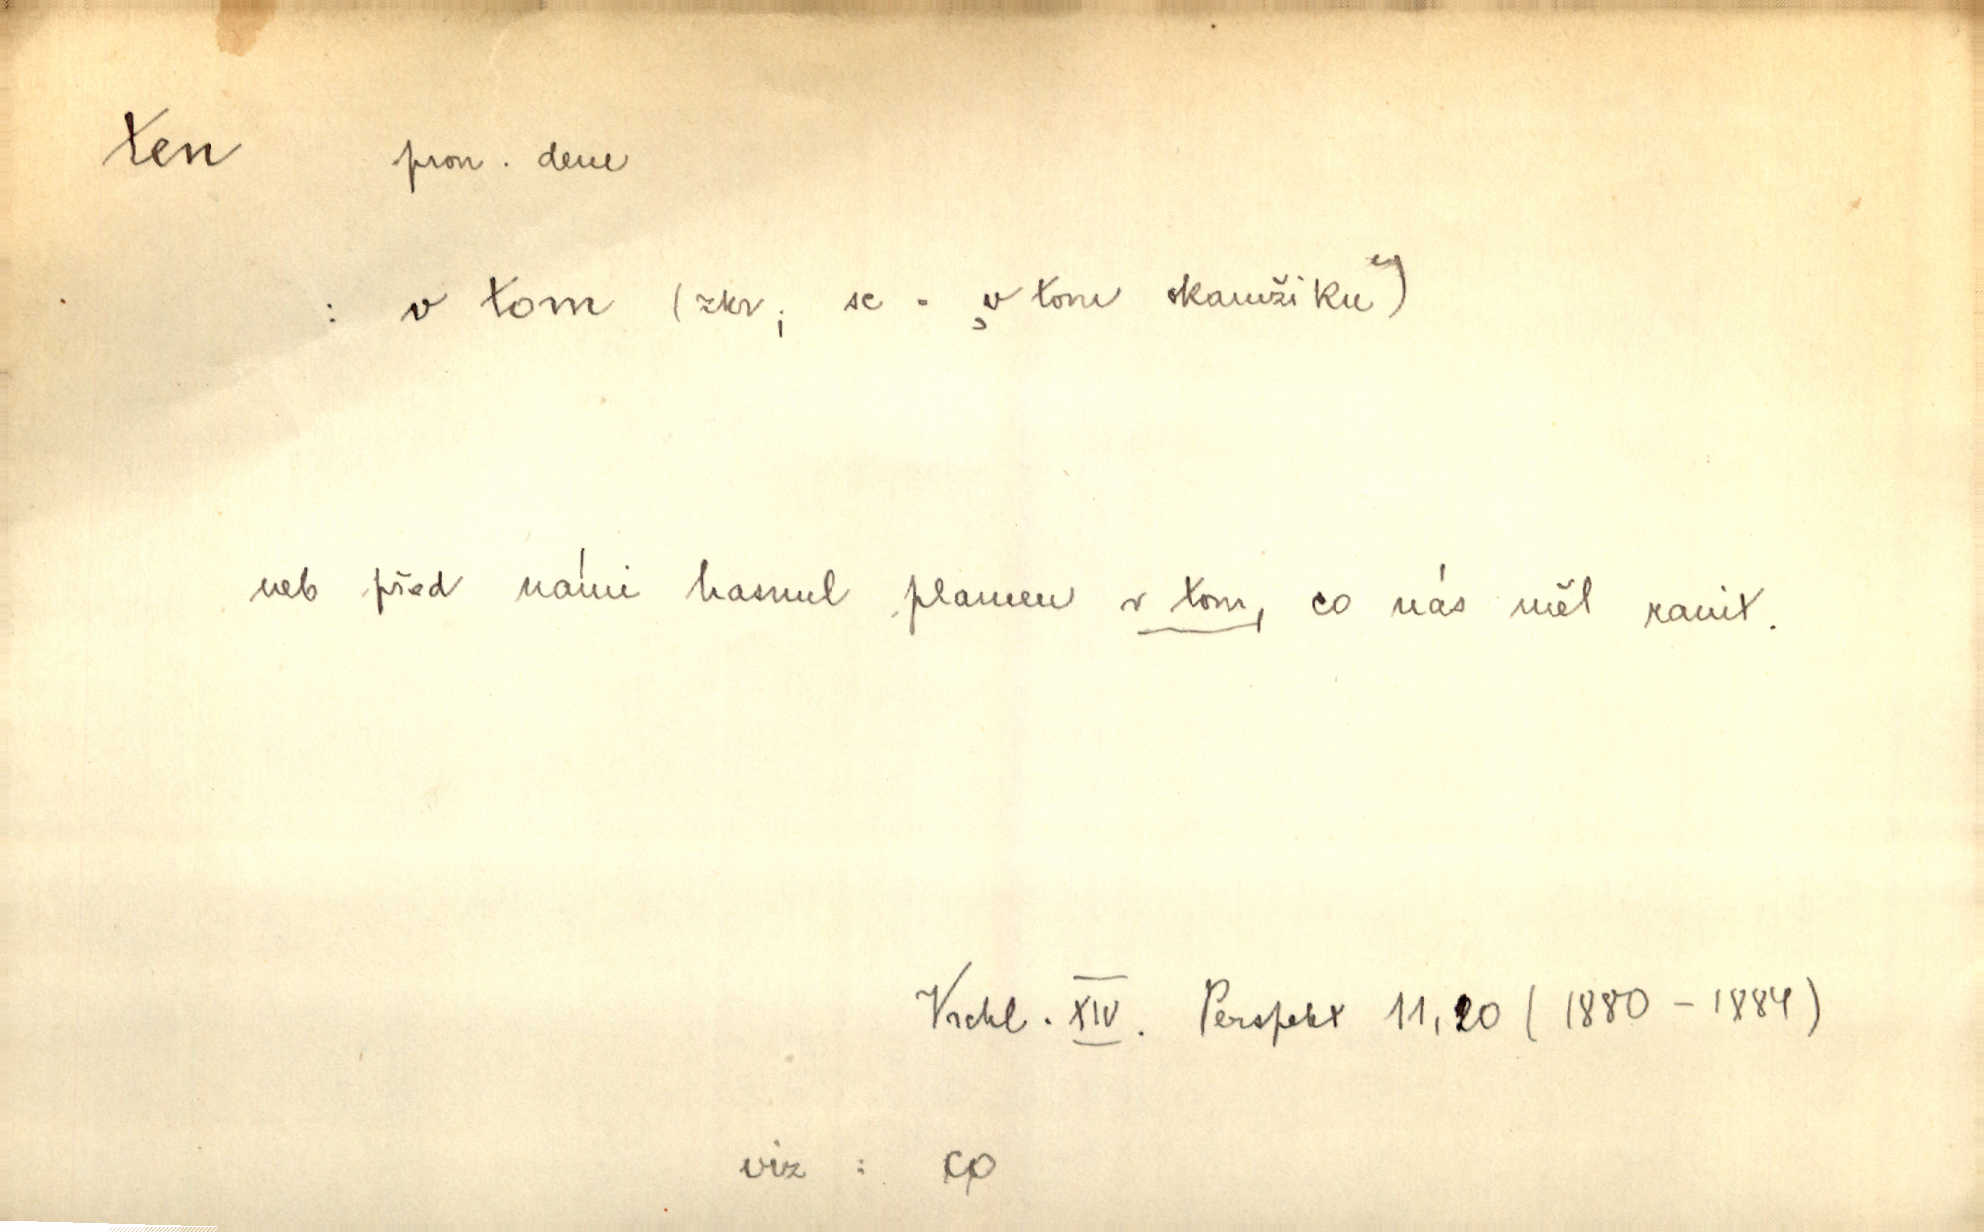 ten pron. dem
: v tom (zkr, sc. „v tom okamžiku“)
neb před námi hasnul plamen v tom, co nás měl ranit.
Vrchl. XIV. Perspekt 11,20 (1880 - 1884)
viz : co